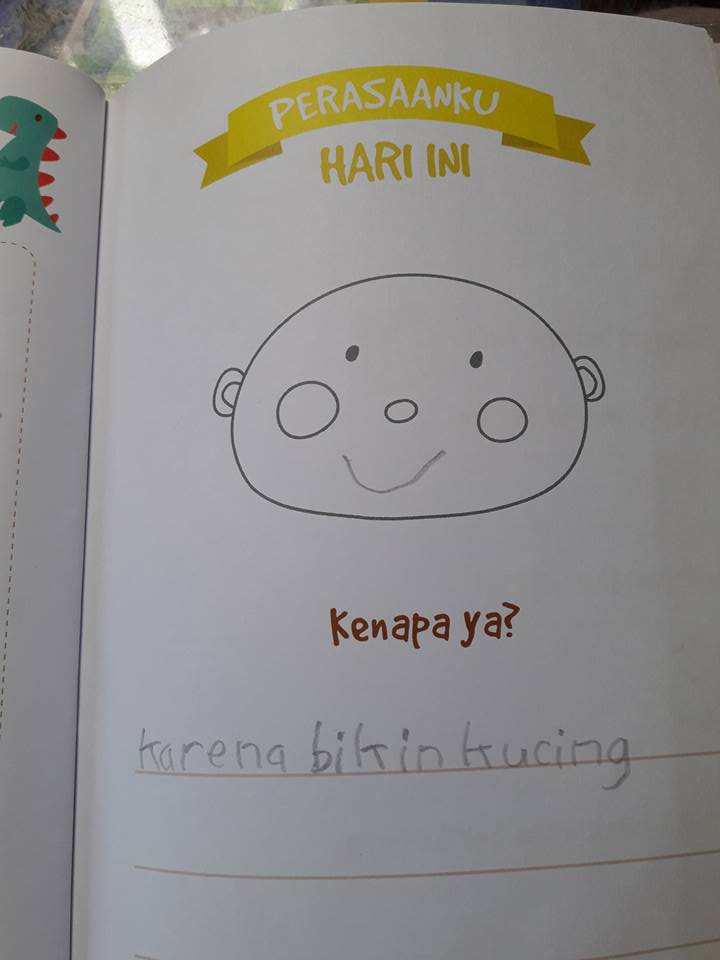 PERASAANKU
HARI INI
Kenapa ya?
karena bikin kucing